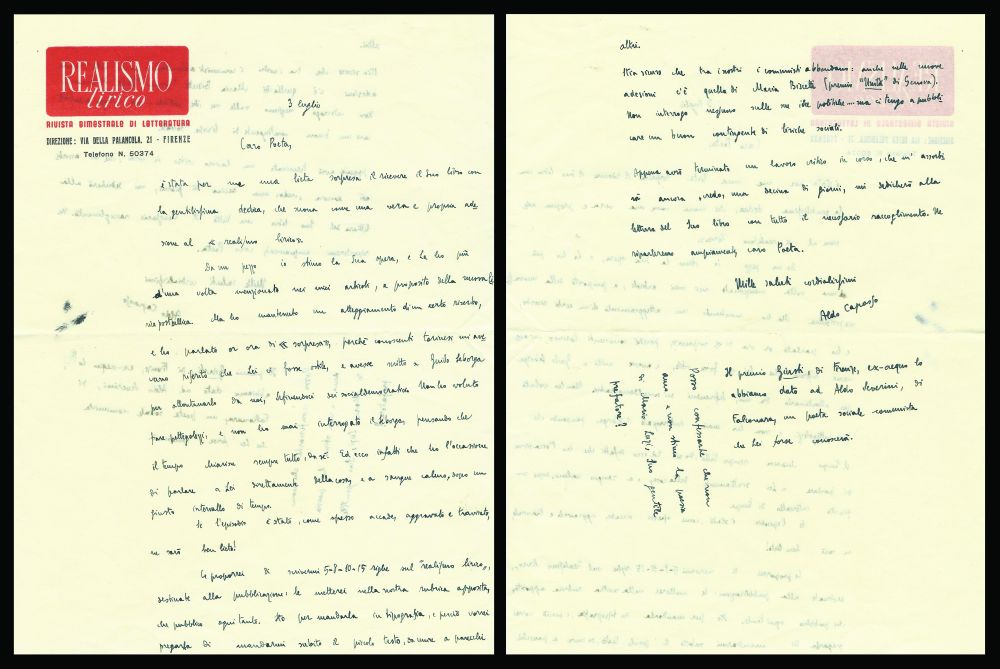 REALISMO
lirico
RIVISTA BIMESTRALE DI LETTERATURA
DIREZIONE: VIA DELLA PALANCOLA, 21 - FIRENZE
Telefono N. 50374
3 luglio
Caro Poeta,
è stata per me una lieta sorpresa il ricevere il Suo libro con
la gentilissima dedica, che suona come una vera e propria ade
sione al « realismo lirico».
Da un pezzo io stimo la Sua opera, e La ho più
d'una volta menzionato nei miei articoli, a proposito della
postbellica. Ma ho mantenuto un atteggiamento di un certo riserbo,
e ho parlato or ora di « sorpresa», perché conoscenti torinesi mi ave
vano riferito che Lei ci fosse ostile, e avesse scritto a Guido Seborga
per allontanarlo da noi, definendoci dei socialdemocratici. Non ho voluto
fare pettegolezzi, e non ho mai interrogato il Seborga, pensando che
il tempo chiarisce sempre tutto, da sé. Ed ecco infatti che ho l'occasione
di parlare a Lei direttamente della cosa, e a sangue calmo, dopo un
giusto intervallo di tempo.
Se l'episodio è stato, come spesso accade, e travisato,
ne sarò ben lieto!
Le proporrei di scrivermi 5-8-10-15 righe sul "realismo lirico",
destinate alla pubblicazione: le metterei nella nostra rubrica apposita,
che pubblico ogni tanto. Sto per mandarla in tipografia, e perciò vorrei
pregarla di mandarmi subito il piccolo testo, da unire a parecchi
altri.
Stia sicuro che tra i nostri i comunisti abbondano: anche nelle nuove
adesioni c'è quella di Maria (premio "Unità" di Genova).
Non interrogo nessuno sulle sue idee politiche... ma ci tengo a pubbli
care un buon contingente di liriche sociali.
Appena avrò terminato un lavoro critico in corso, che m'assorbi
rà ancora, credo, una decina di giorni, mi dedicherò alla
lettura del Suo libro con tutto il necessario raccoglimento. Ne
riparleremo ampiamente, caro Poeta.
Mille saluti cordialissimi
Aldo Capasso
Il premio Giusti, di Firenze, ex-aequo lo
abbiamo dato ad Aldo Severini, di
Falconara, un poeta sociale comunista
che Lei forse conoscerà.
Posso confessarle che non
amo e non stimo la poesia
di Mario Luzi, Suo gentile
prefatore?